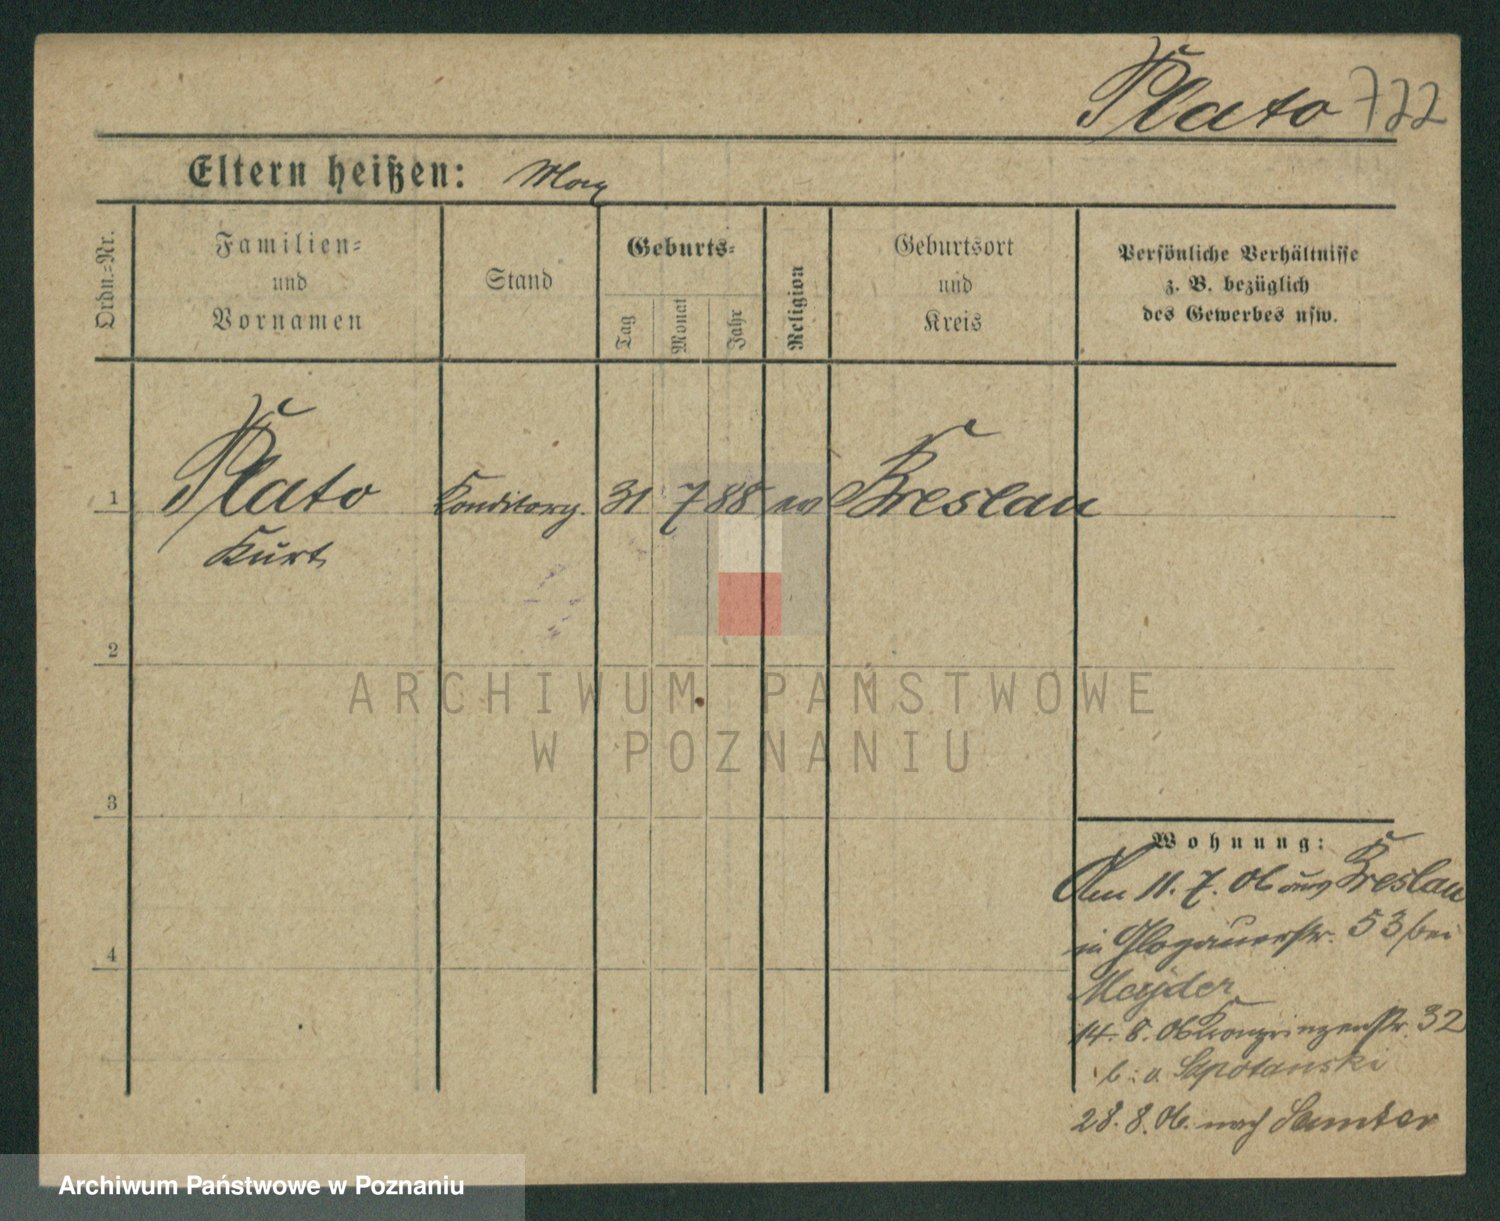 Plato 722
Eltern heißen: Max
Ordn.=Nr.
Familien=
und
Vornamen
Stand
Geburts=
Tag
Monat
Jahr
Religion
Geburtsort
und
Kreis
Persönliche Verhältnisse
z. B. bezüglich
des Gewerbes usw.
1 Plato Konditorg. 31 7 88 ev Breslau
Kurt
2
ARCHIWUM PAŃSTWOWE
W POZNANIU
3
4
Wohnung:
Am 11. 7. 06 aus Breslau
in Glogauerstr. 53 bei
14. 8. 06 Kronprinzenstr. 32
28. 8. 06. nach Samter
Archiwum Państwowe w Poznaniu